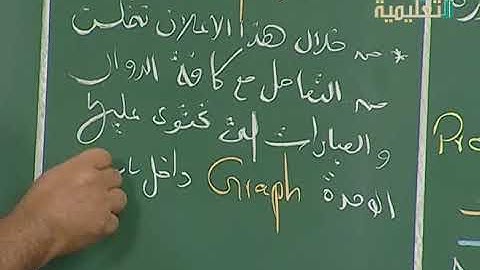 التعليمية
* من خلال هذا الاعلان نتخلص
من التعامل مع كافة الدوال
والعبارات التي تحتوى عليها
الوحدة Graph داخل
Pro